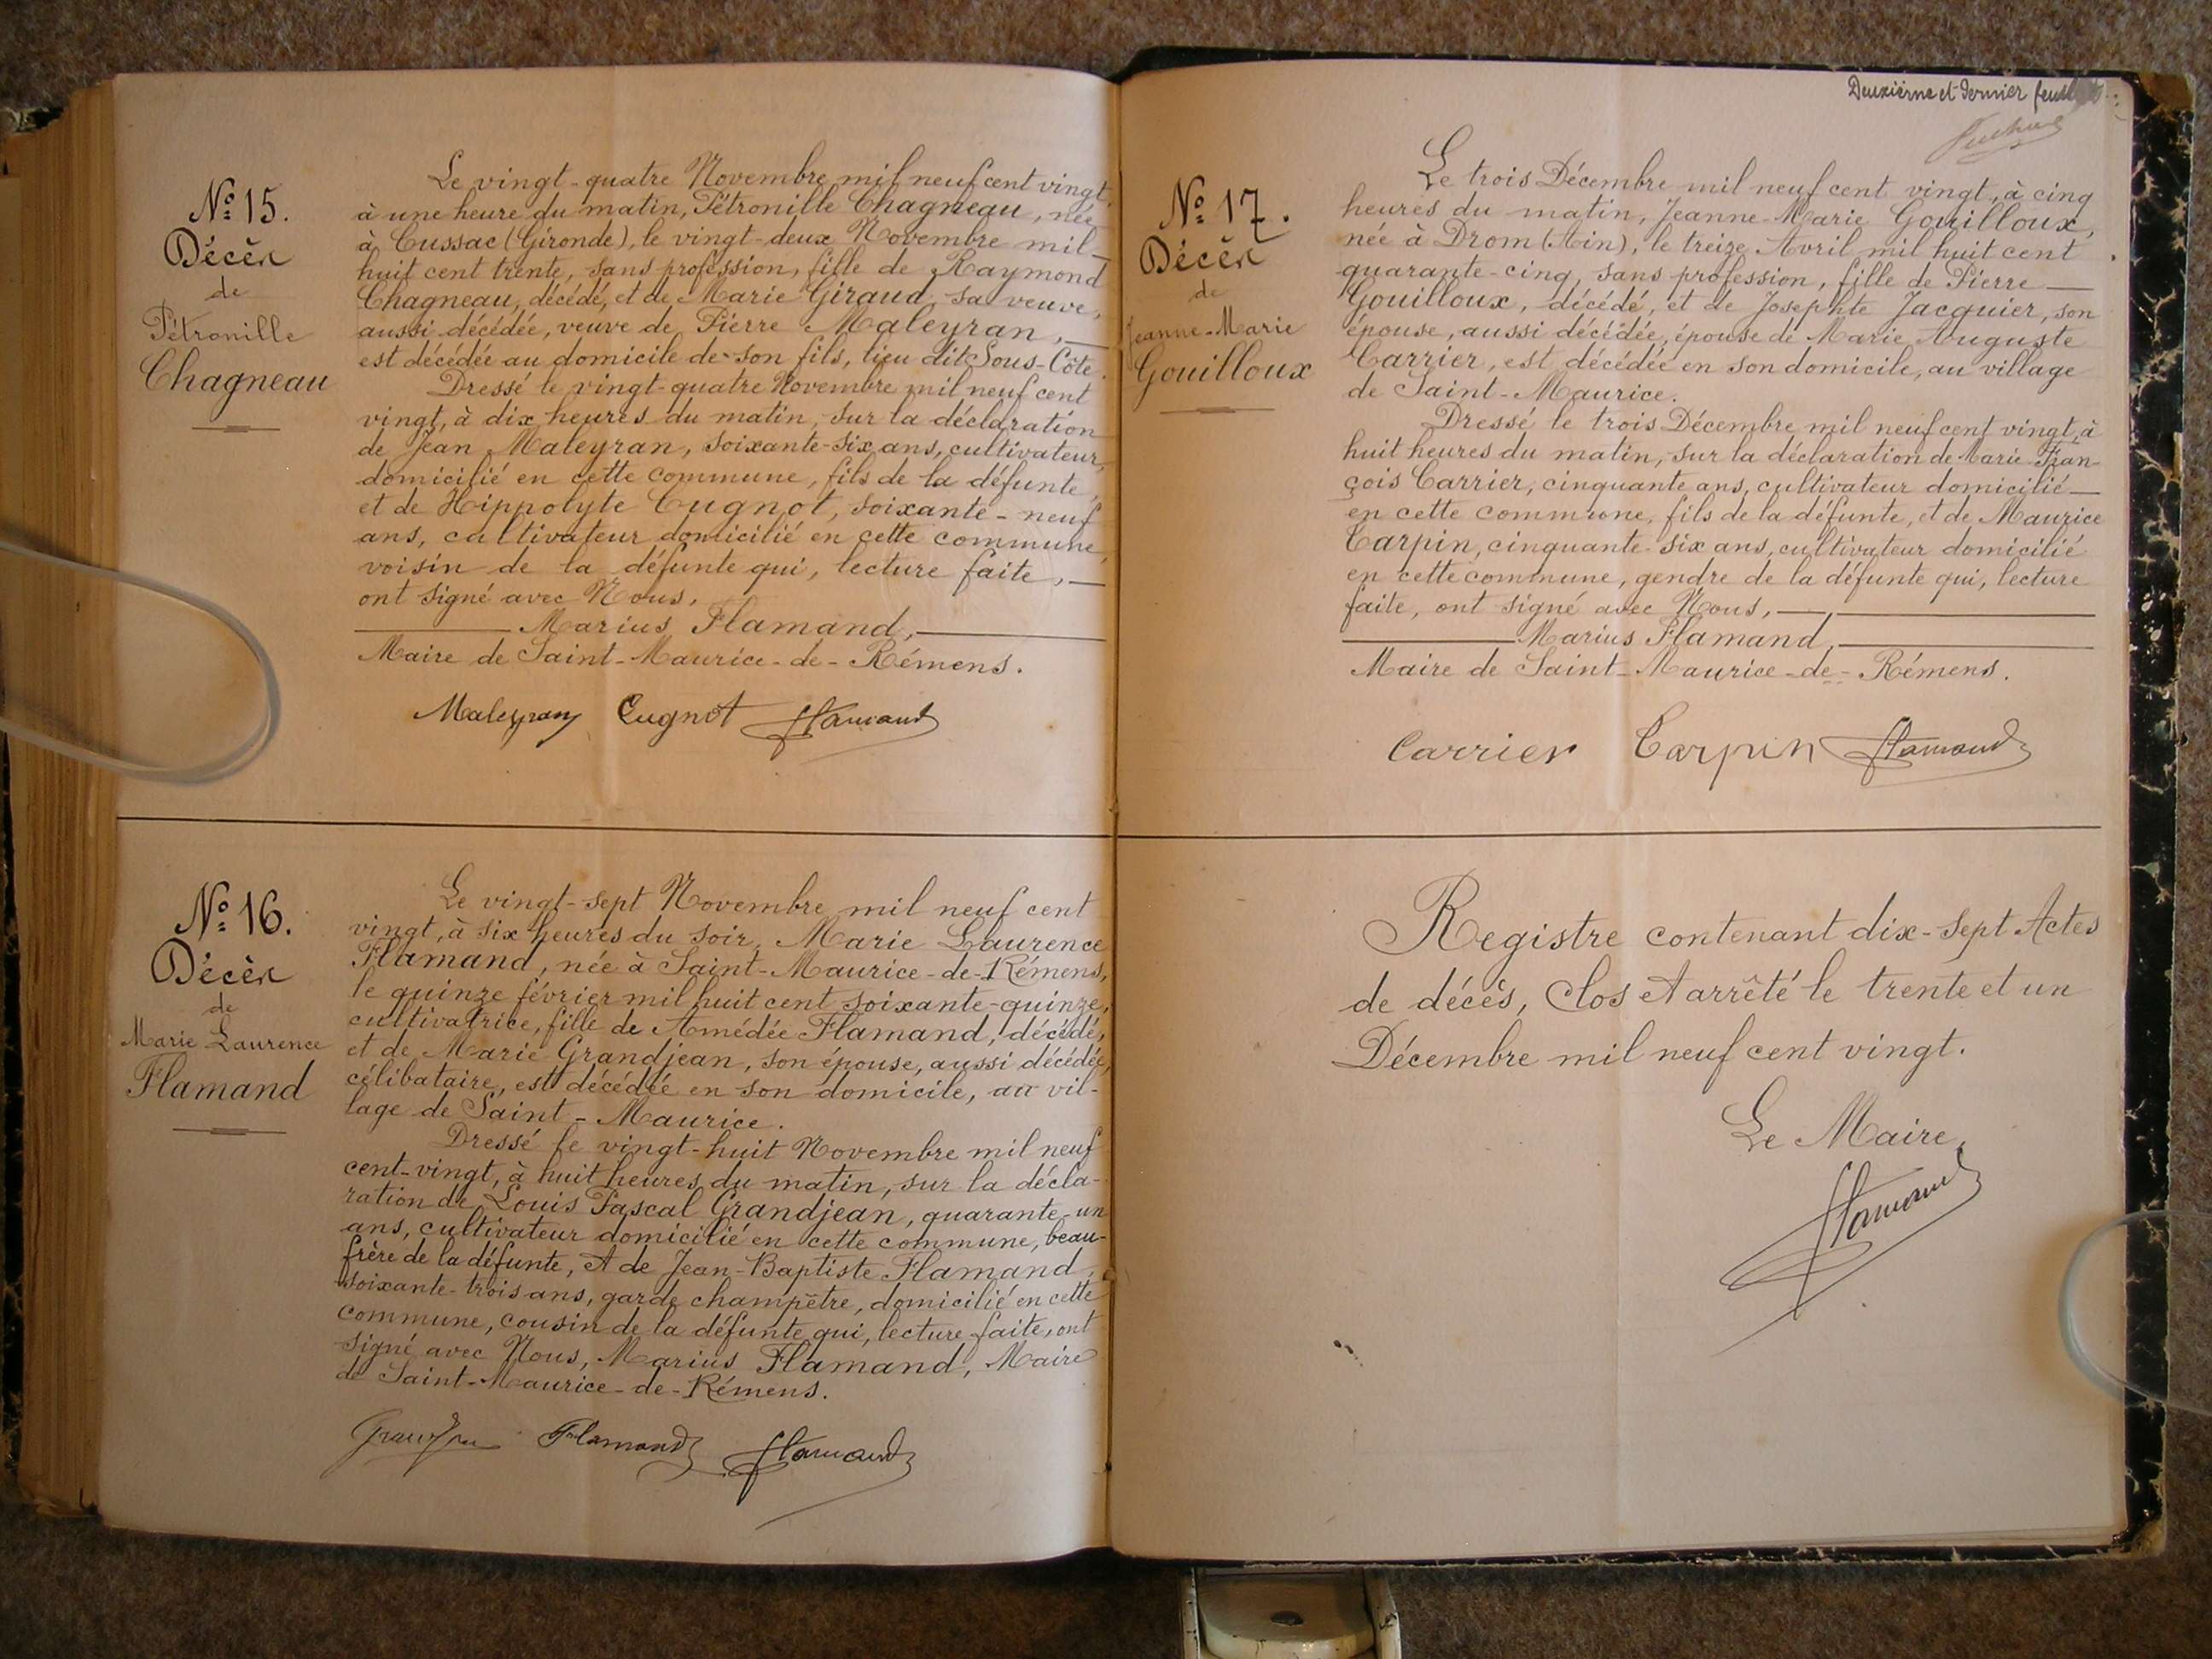 N° 15.
Décès
de
Pétronille
Chagneau
Le vingt-quatre Novembre mil neuf cent vingt,
à une heure du matin, Pétronille Chagneau, née
à Cussac (Gironde), le vingt-deux Novembre mil
huit cent trente, sans profession, fille de Raymond
Chagneau, décédé, et de Marie Giraud, sa veuve,
aussi décédée, veuve de Pierre Maleyran,
est décédée au domicile de son fils, lieu dit Sous-Côte.
Dressé le vingt-quatre Novembre mil neuf cent
vingt, à dix heures du matin, sur la déclaration
de Jean Maleyran, soixante-six ans, cultivateur,
domicilié en cette commune, fils de la défunte,
et de Hippolyte Cugnot, soixante-neuf
ans, cultivateur domicilié en cette commune,
voisin de la défunte qui, lecture faite,
ont signé avec Nous,
Marius Flamand,
Maire de Saint-Maurice-de-Rémens.
Maleyran Cugnot Flamand
N° 16.
Décès
de
Marie Laurence
Flamand
Le vingt-sept Novembre mil neuf cent
vingt, à six heures du soir, Marie Laurence
Flamand, née à Saint-Maurice-de-Rémens,
le quinze février mil huit cent soixante-quinze,
cultivatrice, fille de Amédée Flamand, décédé,
et de Marie Grandjean, son épouse, aussi décédée,
célibataire, est décédée en son domicile, au vil-
lage de Saint-Maurice.
Dressé le vingt-huit Novembre mil neuf
cent-vingt, à huit heures du matin, sur la décla-
ration de Louis Pascal Grandjean, quarante-un
ans, cultivateur domicilié en cette commune, beau-
frère de la défunte, et de Jean-Baptiste Flamand,
soixante-trois ans, garde champêtre, domicilié en cette
commune, cousin de la défunte qui, lecture faite, ont
signé avec Nous, Marius Flamand, Maire
de Saint-Maurice-de-Rémens.
Grandjean Flamand Flamand
Deuxième et dernier feuillet
N° 17.
Décès
de
Jeanne-Marie
Gouilloux
Le trois Décembre mil neuf cent vingt, à cinq
heures du matin, Jeanne-Marie Gouilloux,
née à Drom (Ain), le treize Avril mil huit cent
quarante-cinq, sans profession, fille de Pierre
Gouilloux, décédé, et de Josephte Jacquier, son
épouse, aussi décédée, épouse de Marie Auguste
Carrier, est décédée en son domicile, au village
de Saint-Maurice.
Dressé le trois Décembre mil neuf cent vingt, à
huit heures du matin, sur la déclaration de Marie-Fran-
çois Carrier, cinquante ans, cultivateur domicilié
en cette commune, fils de la défunte, et de Maurice
Carpin, cinquante-six ans, cultivateur domicilié
en cette commune, gendre de la défunte qui, lecture
faite, ont signé avec Nous,
Marius Flamand,
Maire de Saint-Maurice-de-Rémens.
Carrier Carpin Flamand
Registre contenant dix-sept Actes
de décès, clos et arrêté le trente et un
Décembre mil neuf cent vingt.
Le Maire,
Flamand